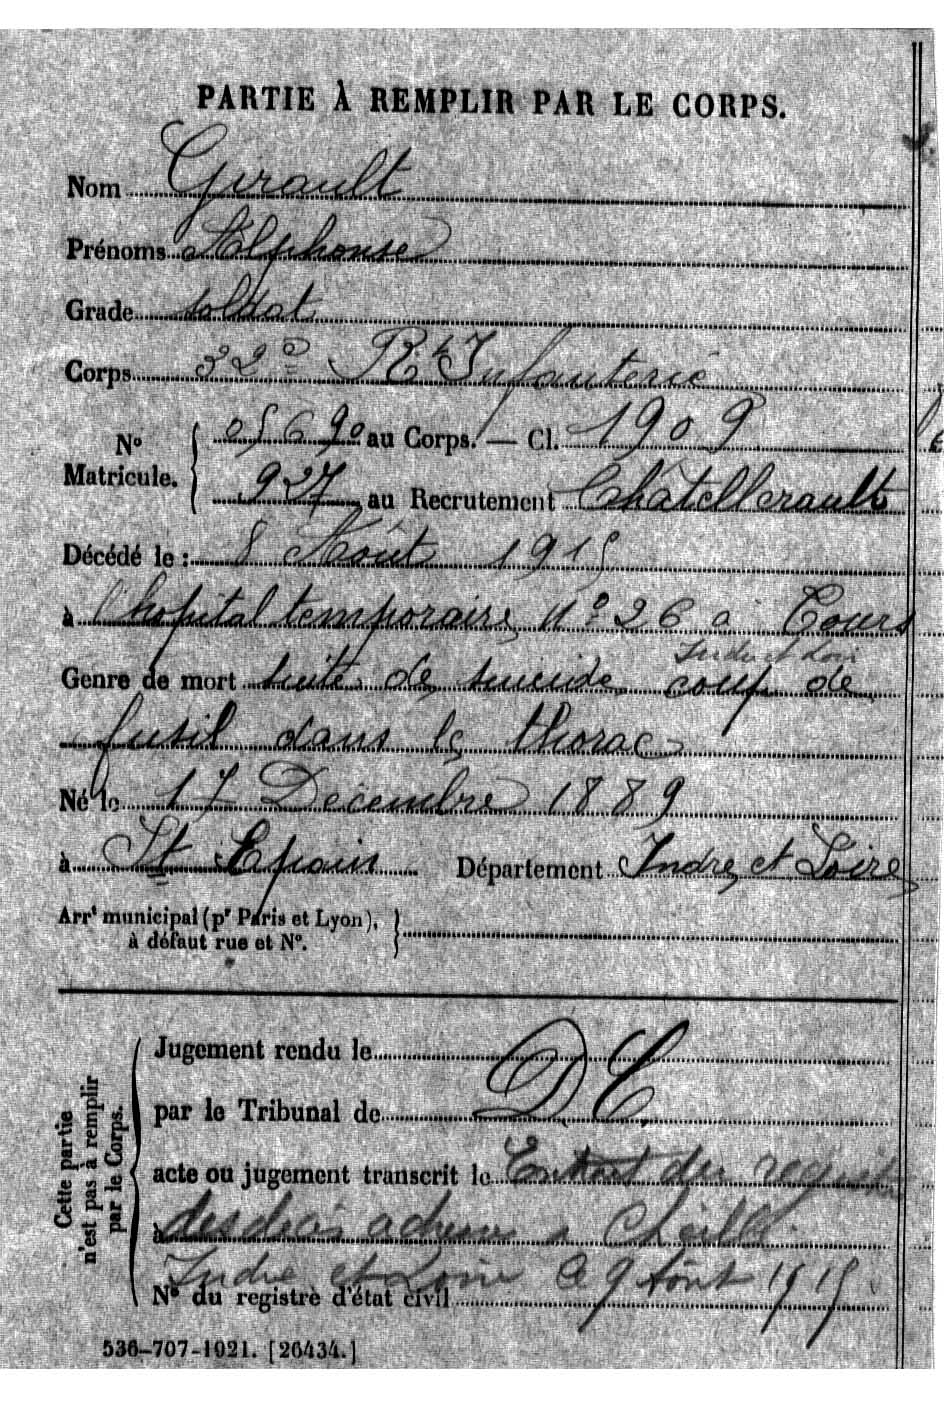 PARTIE À REMPLIR PAR LE CORPS.
Nom Girault
Prénoms Alphonse
Grade soldat
Corps 32e Rt Infanterie
No Matricule. 05690 au Corps. — Cl. 1909
927 au Recrutement Châtellerault
Décédé le : 8 Août 1915
à l'hopital temporaire no 26 à Tours
Indre et Loire
Genre de mort suite de suicide coup de
fusil dans le thorac
Né le 17 Decembre 1889
à St Epain Département Indre et Loire
Arrt municipal (pr Paris et Lyon),
à défaut rue et No.
Cette partie
n'est pas à remplir
par le Corps.
Jugement rendu le
par le Tribunal de
D C
acte ou jugement transcrit le Extrait du registre
à des décès adressé à Cheillé
Indre et Loire le 9 Août 1915
No du registre d'état civil
536-707-1921. [26434.]